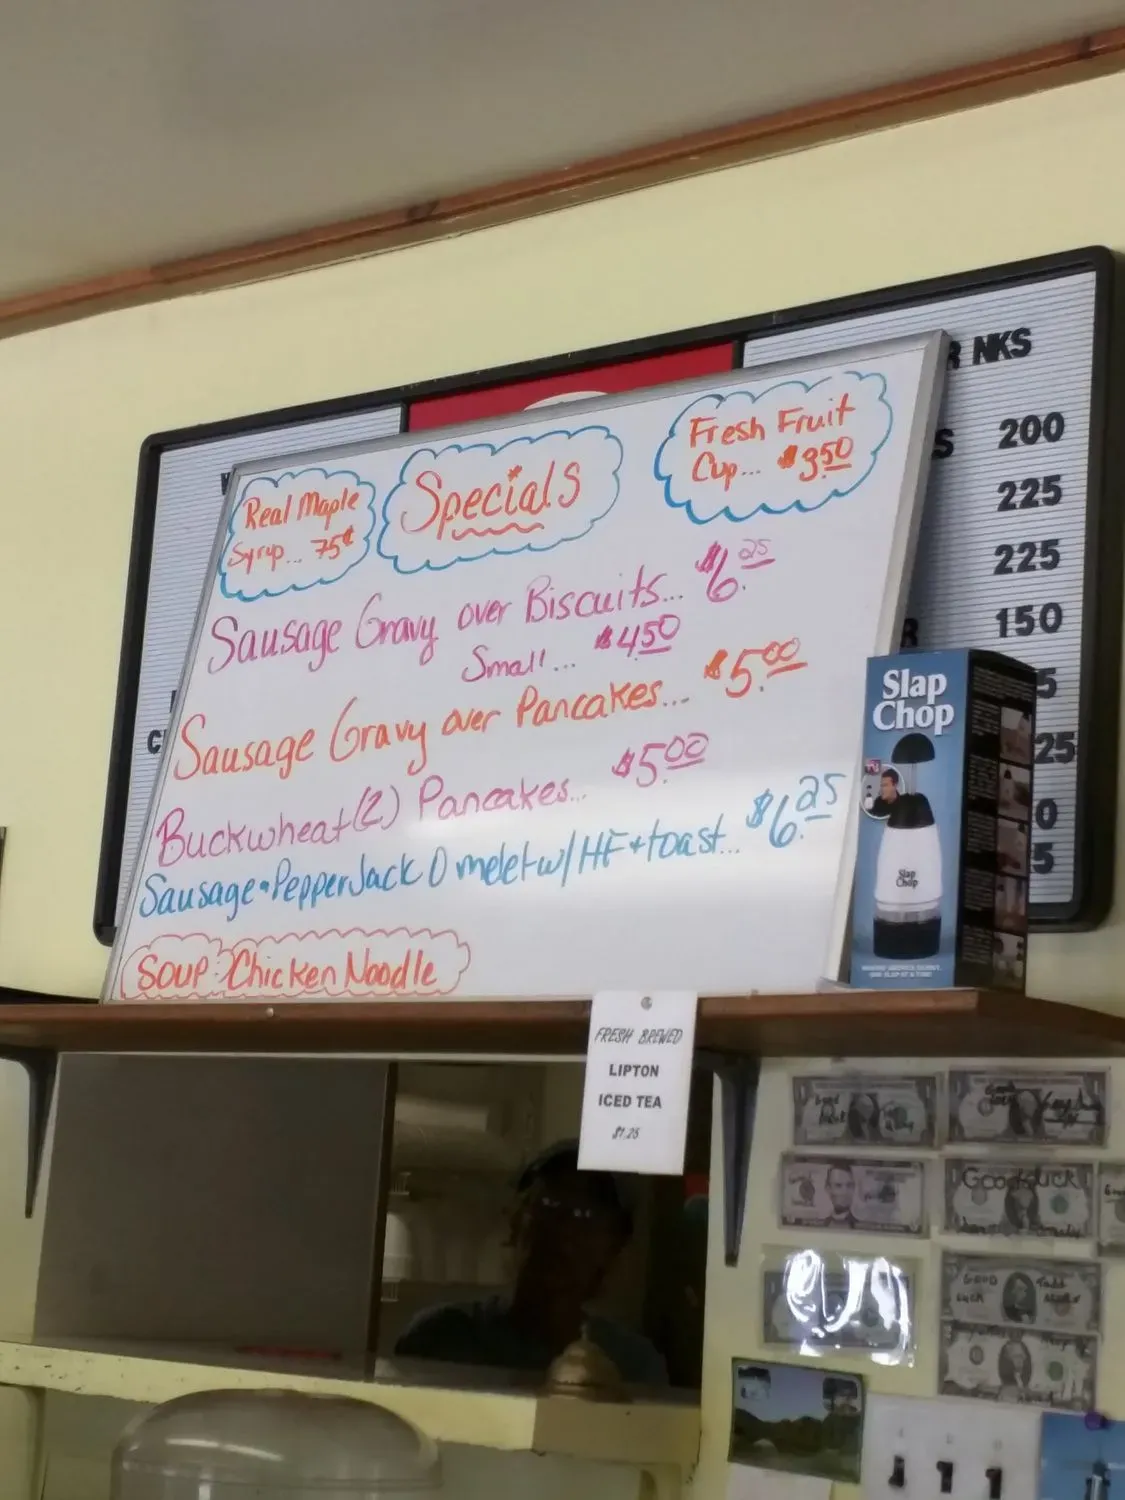 NKS
200
225
225
150
5
25
0
5
Real Maple
Syrup... 75¢
Specials
Fresh Fruit
Cup... $3.50
Sausage Gravy over Biscuits... $6.25
Small... $4.50
Sausage Gravy over Pancakes... $5.00
Buckwheat (2) Pancakes... $5.00
Sausage • Pepper Jack Omelet w/ HF + toast... $6.25
Soup: Chicken Noodle
Slap
Chop
Slap
Chop
FRESH BREWED
LIPTON
ICED TEA
$1.25
Good Luck